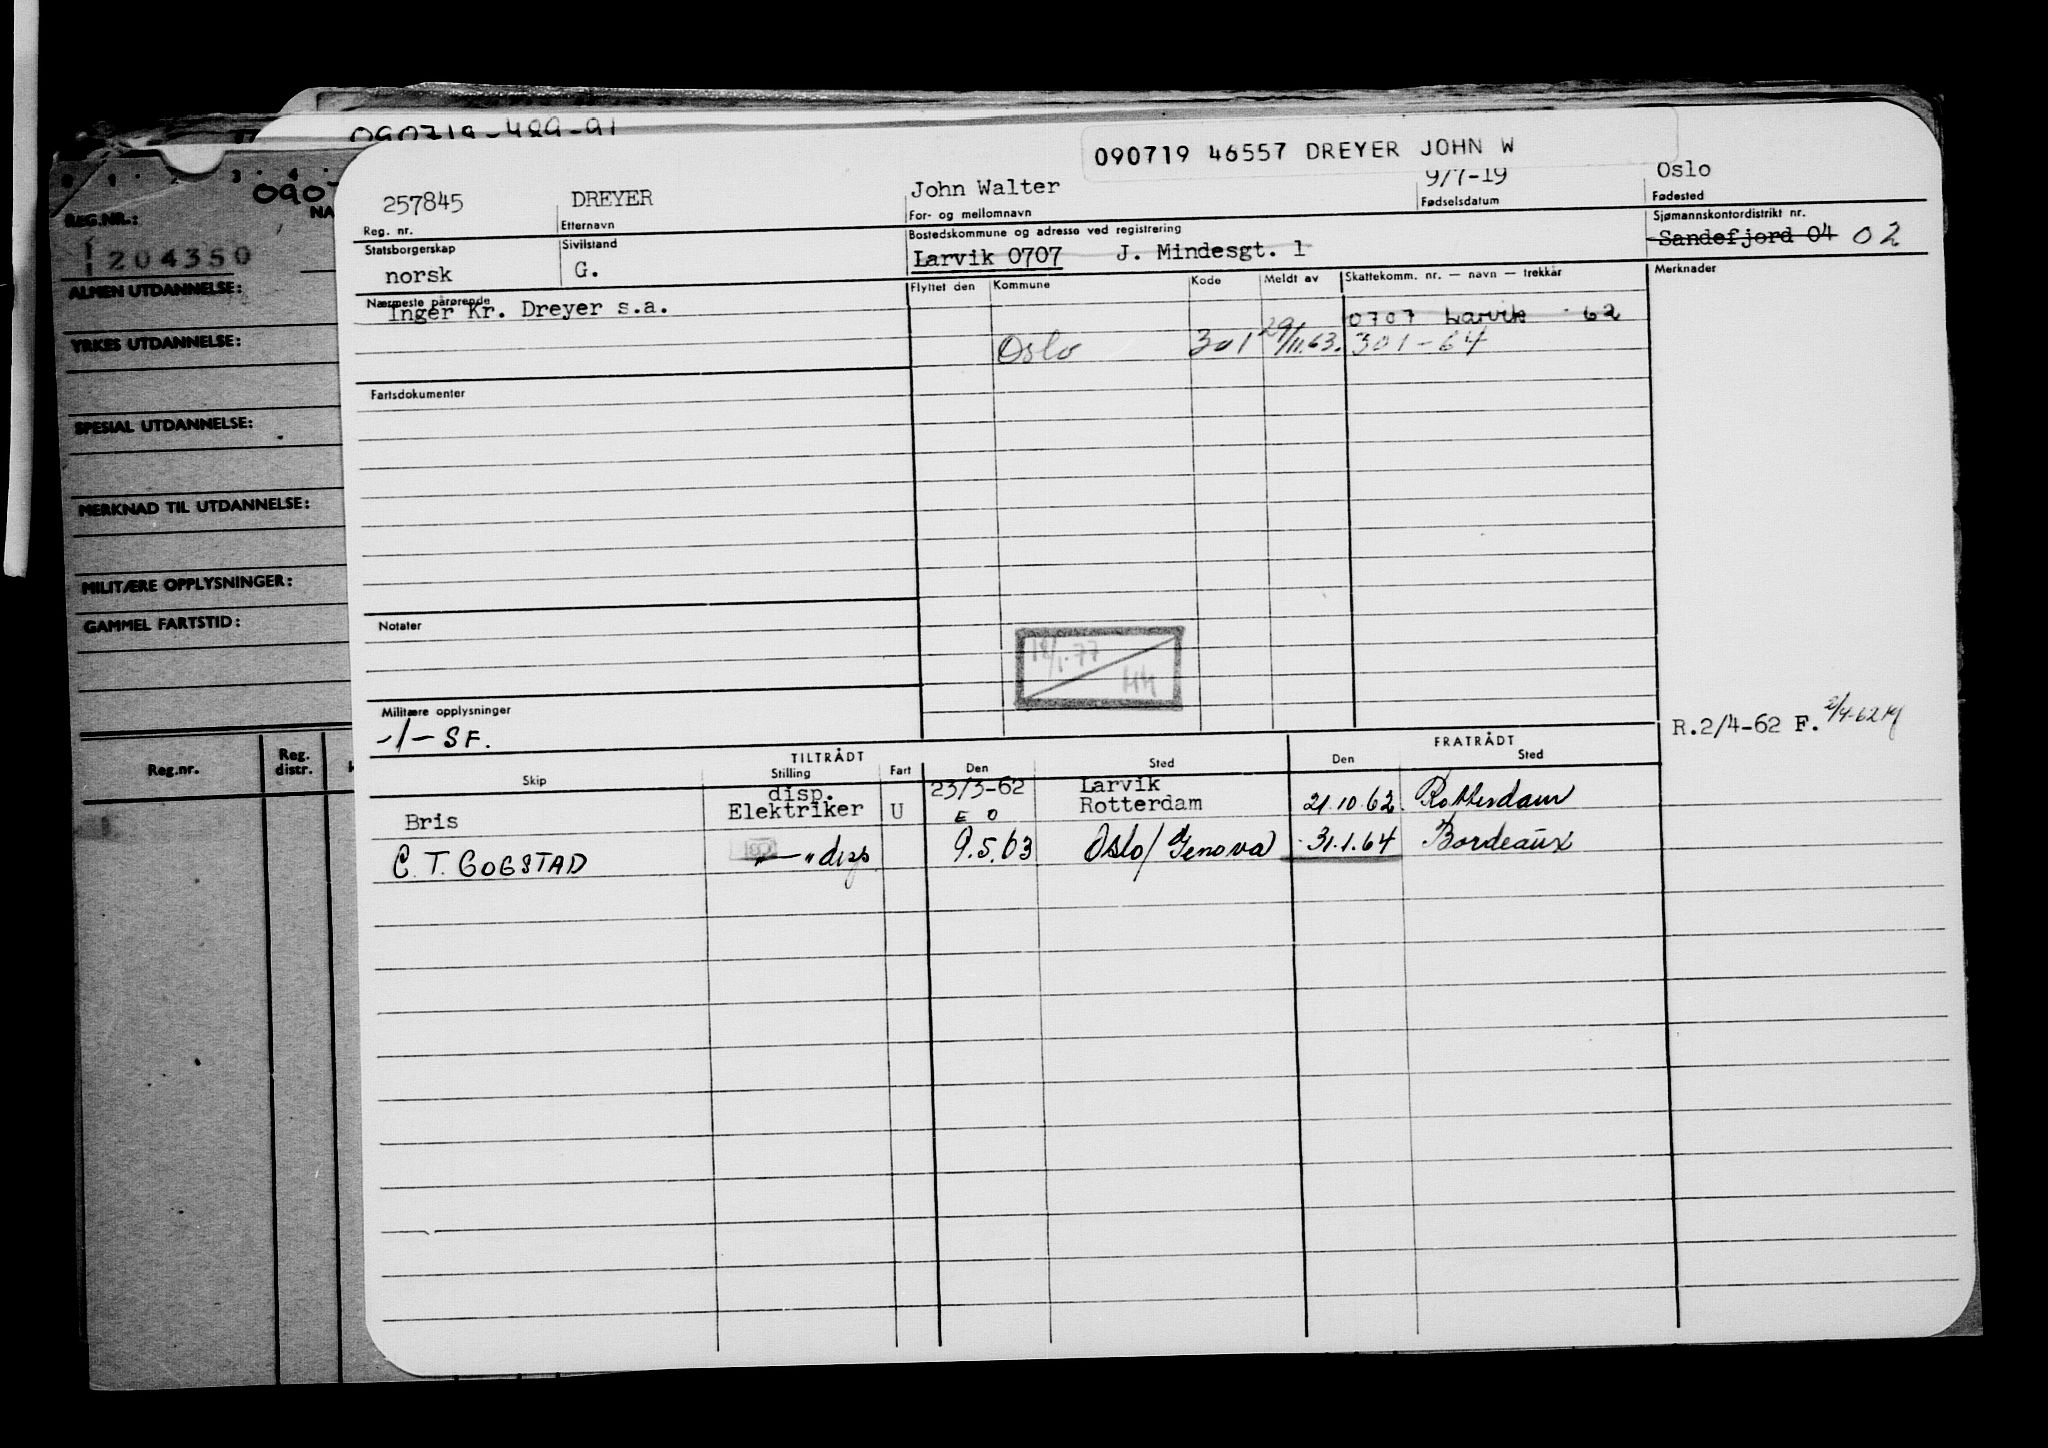 090719-489-91
090719 46557 DREYER JOHN W
257845 DREYER John Walter 9/7-19 Oslo
Reg. nr. Etternavn For- og mellomnavn Fødselsdatum Fødested
Statsborgerskap Sivilstand Bostedskommune og adresse ved registrering Sjømannskontordistrikt nr.
norsk G. Larvik 0707 J. Mindesgt. 1 Sandefjord 04 02
Nærmeste pårørende Flyttet den Kommune Kode Meldt av Skattekomm. nr. — navn — trekkår Merknader
Inger Kr. Dreyer s.a. 0707 Larvik 62
Oslo 301 29/11.63. 301-64
Fartsdokumenter
Notater
18/1.77
HH
Militære opplysninger
-/- SF.
R.2/4-62 F.
TILTRÅDT FRATRÅDT
Skip Stilling Fart Den Sted Den Sted
disp. 23/3-62 Larvik
Bris Elektriker U E O Rotterdam 21.10.62 Rotterdam
C. T. GOGSTAD —"— disp 9.5.63 Oslo/Genova 31.1.64 Bordeaux
0 1 2 3 4
REG.NR.: NA
204350
ALMEN UTDANNELSE:
YRKES UTDANNELSE:
SPESIAL UTDANNELSE:
MERKNAD TIL UTDANNELSE:
MILITÆRE OPPLYSNINGER:
GAMMEL FARTSTID:
Reg.nr. Reg. distr.